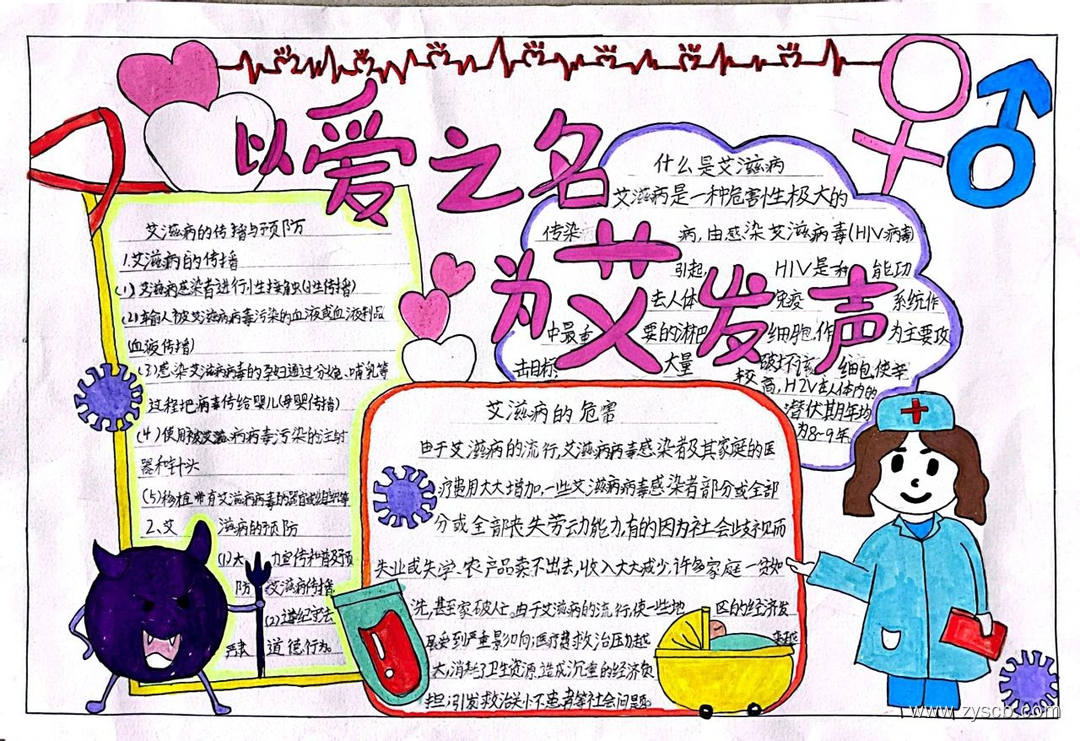 以爱之名
为艾发声
什么是艾滋病
艾滋病是一种危害性极大的
传染病,由感染艾滋病毒(HIV病毒
引起,HIV是种能功
去人体免疫系统作
中最重要的淋巴细胞作为主要攻
击目标,大量破坏该细胞,使
较高,HZV在人体内的
潜伏期年均
为8~9年
艾滋病的传播与预防
1.艾滋病的传播
(1)艾滋病感染者进行性接触(性传播)
(2)输入被艾滋病病毒污染的血液或血液制品
(血液传播)
(3)感染艾滋病病毒的孕妇通过分娩、哺乳等
过程把病毒传给婴儿(母婴传播)
(4)使用被艾滋病病毒污染的注射
器和针头
(5)移植带有艾滋病病毒的器官或组织等
2、艾滋病的预防
(1)大力宣传和普及预
防艾滋病传播
(2)遵纪守法
道德行为
艾滋病的危害
由于艾滋病的流行,艾滋病病毒感染者及其家庭的医
疗费用大大增加,一些艾滋病病毒感染者部分或全部
分或全部丧失劳动能力,有的因为社会歧视而
失业或失学、农产品卖不出去,收入大大减少,许多家庭一贫如
洗,甚至家破人亡。由于艾滋病的流行,使一些地区的经济发
展受到严重影响,医疗费救治压力越来越
大,消耗了卫生资源,造成沉重的经济负
担,引发救治关怀患者等社会问题
www.zyscb.com